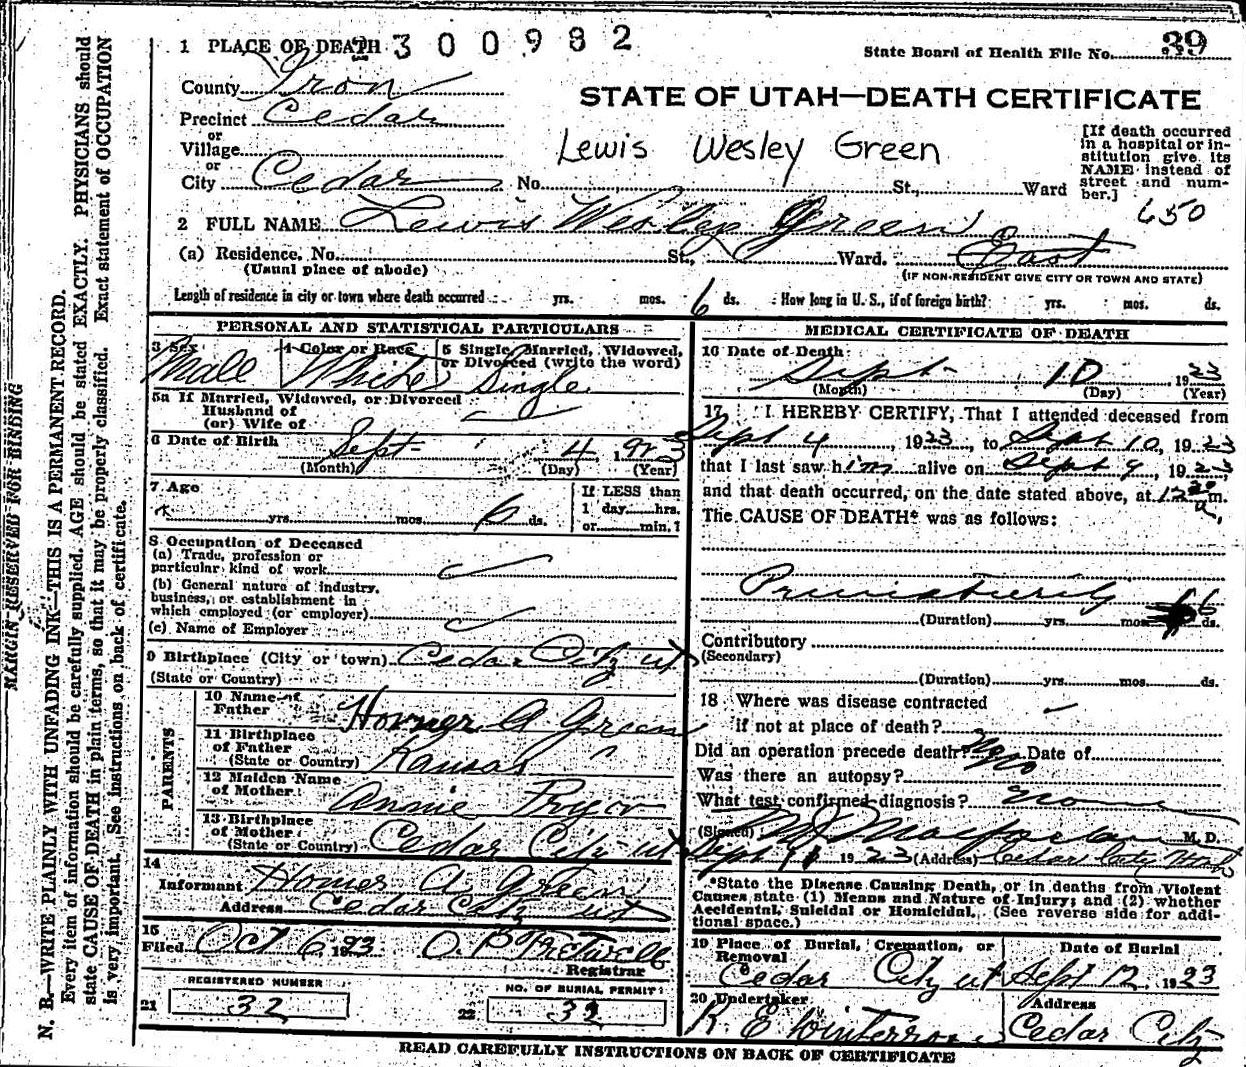 1 PLACE OF DEATH 2300982
State Board of Health File No. 39
County Iron
STATE OF UTAH—DEATH CERTIFICATE
Precinct Cedar
or
Village
or
City Cedar No. St., Ward
Lewis Wesley Green
[If death occurred
in a hospital or in-
stitution give its
NAME instead of
street and num-
ber.]
650
2 FULL NAME Lewis Wesley Green
(a) Residence. No. St., Ward. East
(Usual place of abode)
(IF NON-RESIDENT GIVE CITY OR TOWN AND STATE)
Length of residence in city or town where death occurred yrs. mos. 6 ds. How long in U. S., if of foreign birth? yrs. mos. ds.
PERSONAL AND STATISTICAL PARTICULARS
3 Sex
Male
4 Color or Race
White
5 Single, Married, Widowed,
or Divorced (write the word)
Single
5a If Married, Widowed, or Divorced
Husband of
(or) Wife of
6 Date of Birth Sept 4 1923
(Month) (Day) (Year)
7 Age
yrs. mos. 6 ds.
If LESS than
1 day hrs.
or min.?
8 Occupation of Deceased
(a) Trade, profession or
particular kind of work
(b) General nature of industry,
business, or establishment in
which employed (or employer)
(c) Name of Employer
9 Birthplace (City or town) Cedar City ut
(State or Country)
PARENTS
10 Name of
Father Homer A Green
11 Birthplace
of Father
(State or Country) Kansas
12 Maiden Name
of Mother Annie Pryor
13 Birthplace
of Mother
(State or Country) Cedar City ut
14
Informant Homer A Green
Address Cedar City ut
15
Filed Oct 6 1923
Registrar
REGISTERED NUMBER
21 32
NO. OF BURIAL PERMIT
22 32
MEDICAL CERTIFICATE OF DEATH
16 Date of Death
Sept 10, 1923
(Month) (Day) (Year)
17 I HEREBY CERTIFY, That I attended deceased from
Sept 4, 1923, to Sept 10, 1923
that I last saw him alive on Sept 9, 192
and that death occurred, on the date stated above, at 12 20 a. m.
The CAUSE OF DEATH* was as follows:
Prematurity
(Duration) yrs. mos. 6 ds.
Contributory
(Secondary)
(Duration) yrs. mos. ds.
18 Where was disease contracted
if not at place of death?
Did an operation precede death? No Date of
Was there an autopsy? No
What test confirmed diagnosis? None
(Signed) M J Macfarlane M. D.
Sept 1923 (Address) Cedar City Utah
*State the Disease Causing Death, or in deaths from Violent
Causes state (1) Means and Nature of Injury; and (2) whether
Accidental, Suicidal or Homicidal. (See reverse side for addi-
tional space.)
19 Place of Burial, Cremation, or
Removal
Cedar City ut
Date of Burial
Sept 12, 1923
20 Undertaker
Address
Cedar City
READ CAREFULLY INSTRUCTIONS ON BACK OF CERTIFICATE
MARGIN RESERVED FOR BINDING
N. B.—WRITE PLAINLY WITH UNFADING INK—THIS IS A PERMANENT RECORD.
Every item of information should be carefully supplied. AGE should be stated EXACTLY. PHYSICIANS should
state CAUSE OF DEATH in plain terms, so that it may be properly classified. Exact statement of OCCUPATION
is very important. See instructions on back of certificate.